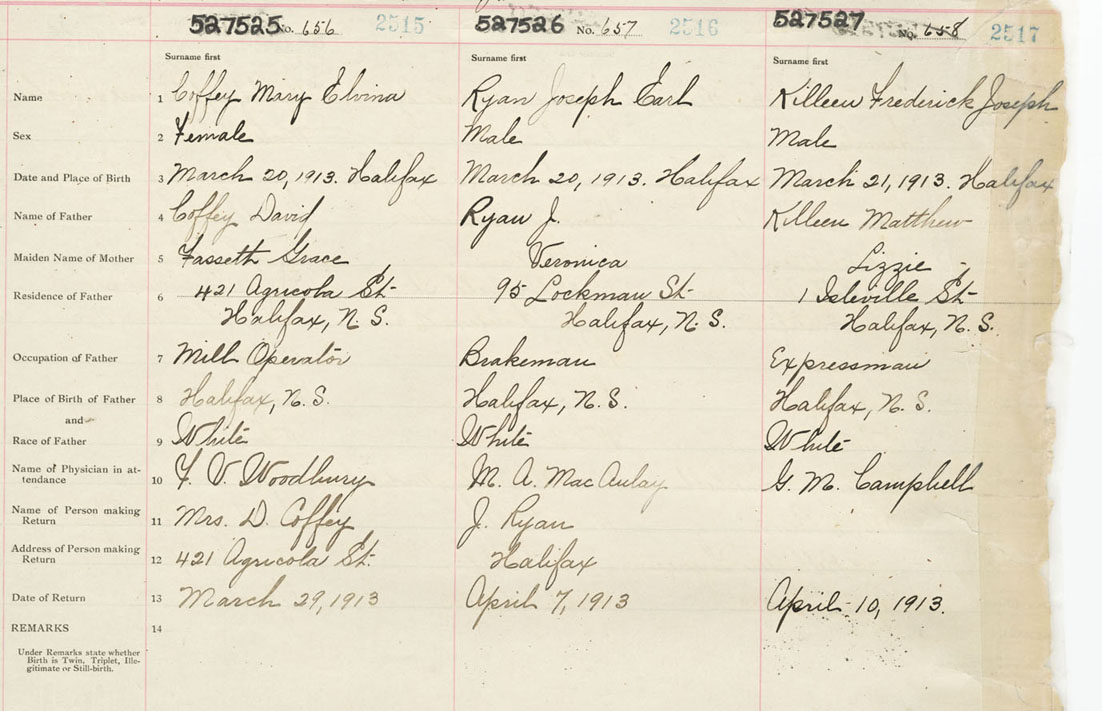 527525 No. 656 2515 527526 No. 657 2516 527527 No. 658 2517
Surname first Surname first Surname first
Name 1 Coffey Mary Elvina Ryan Joseph Earl Killeen Frederick Joseph
Sex 2 Female Male Male
Date and Place of Birth 3 March 20, 1913. Halifax March 20, 1913. Halifax March 21, 1913. Halifax
Name of Father 4 Coffey David Ryan J. Killeen Matthew
Maiden Name of Mother 5 Fasseth Grace Veronica Lizzie
Residence of Father 6 421 Agricola St. 95 Lockman St. 1 Isleville St.
Halifax, N. S. Halifax, N. S. Halifax, N. S.
Occupation of Father 7 Mill Operator Brakeman Expressman
Place of Birth of Father 8 Halifax, N. S. Halifax, N. S. Halifax, N. S.
and
Race of Father 9 White White White
Name of Physician in at-
tendance 10 F. V. Woodbury M. A. MacAulay G. M. Campbell
Name of Person making
Return 11 Mrs. D. Coffey J. Ryan
Address of Person making
Return 12 421 Agricola St. Halifax
Date of Return 13 March 29, 1913 April 7, 1913 April 10, 1913.
REMARKS 14
Under Remarks state whether
Birth is Twin, Triplet, Ille-
gitimate or Still-birth.